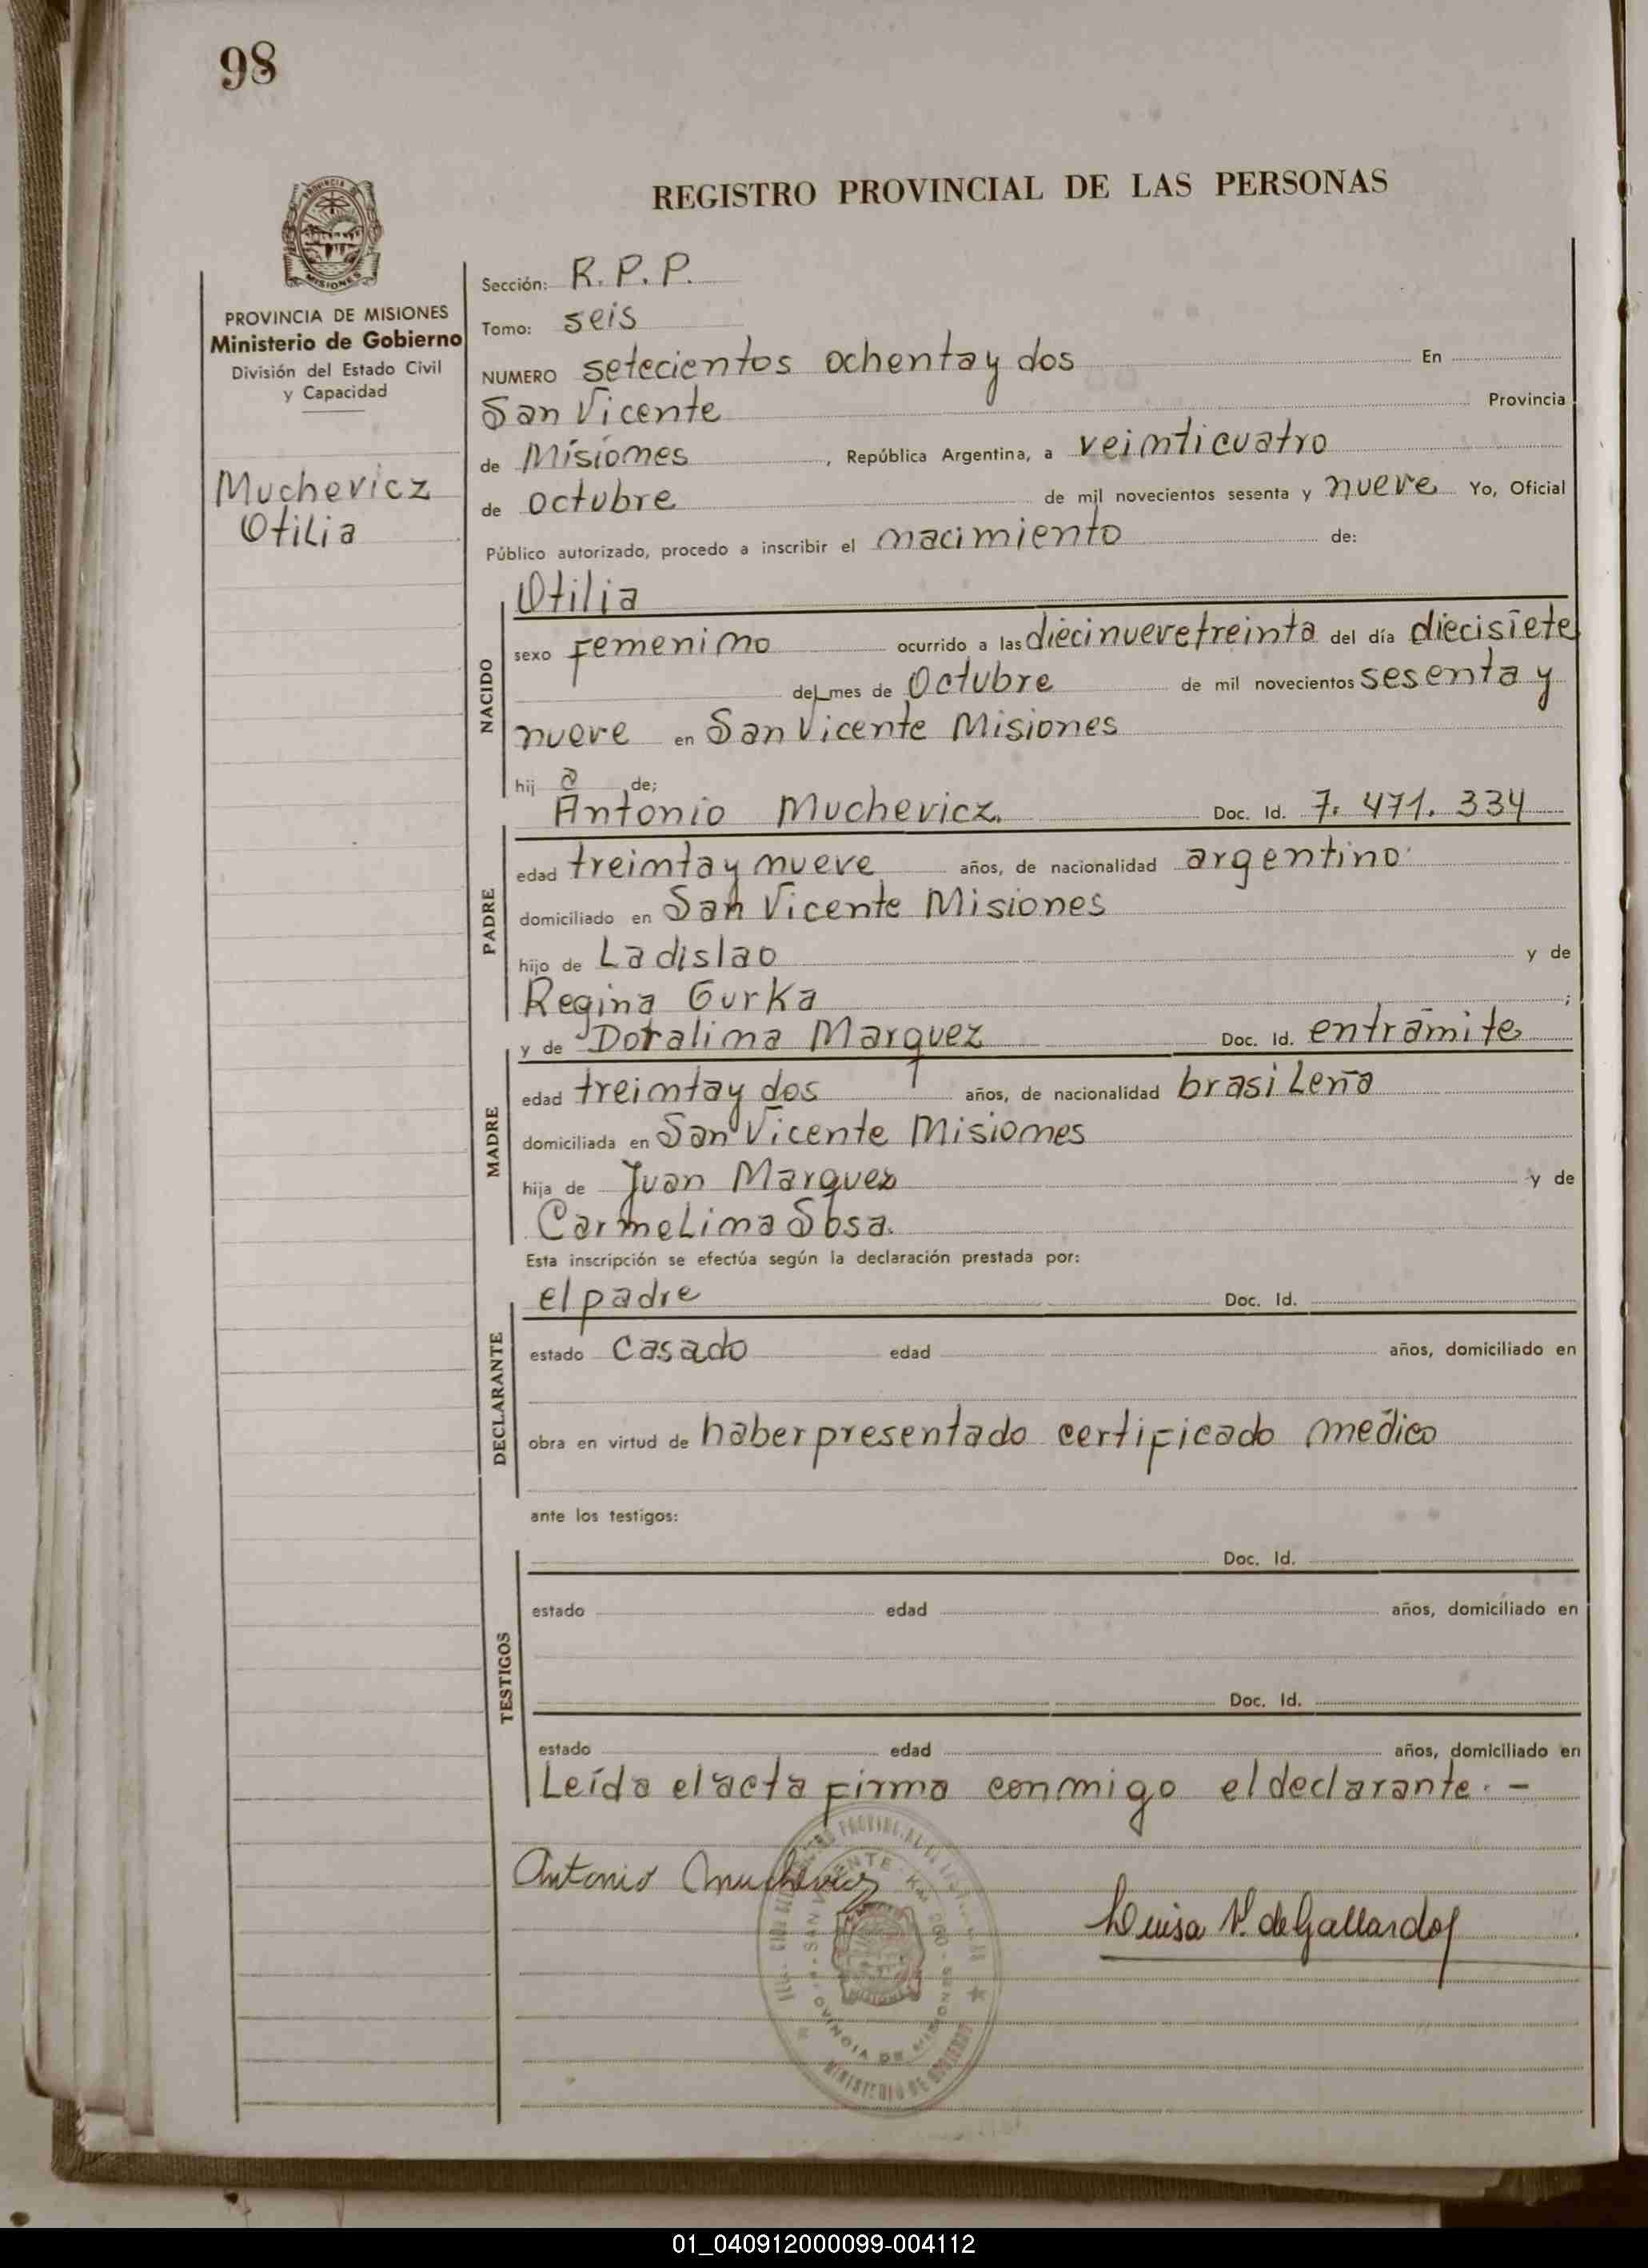 98
REGISTRO PROVINCIAL DE LAS PERSONAS
MISIONES
PROVINCIA DE MISIONES
Ministerio de Gobierno
División del Estado Civil
y Capacidad
Muchevicz
Otilia
Sección: R. P. P.
Tomo: seis
NUMERO setecientos ochenta y dos En
San Vicente Provincia
de Misiones, República Argentina, a veinticuatro
de octubre de mil novecientos sesenta y nueve Yo, Oficial
Público autorizado, procedo a inscribir el nacimiento de:
NACIDO
Otilia
sexo femenino ocurrido a las diecinueve treinta del día diecisiete
del mes de Octubre de mil novecientos sesenta y
nueve en San Vicente Misiones
hij a de;
PADRE
Antonio Muchevicz. Doc. Id. 7. 471. 334
edad treinta y nueve años, de nacionalidad argentino
domiciliado en San Vicente Misiones
hijo de Ladislao y de
Regina Gurka ;
MADRE
y de Doralina Marquez Doc. Id. en trámite
edad treinta y dos años, de nacionalidad brasileña
domiciliada en San Vicente Misiones
hija de Juan Marquez y de
Carmelina Sosa.
Esta inscripción se efectúa según la declaración prestada por:
DECLARANTE
el padre Doc. Id.
estado casado edad años, domiciliado en
obra en virtud de haber presentado certificado médico
ante los testigos:
TESTIGOS
Doc. Id.
estado edad años, domiciliado en
Doc. Id.
estado edad años, domiciliado en
Leída el acta firma conmigo el declarante. -
Antonio Muchevicz
Luisa V. de Gallardo
SAN VICENTE - Km
MISIONES
MINISTERIO DE GOBIERNO
01_040912000099-004112